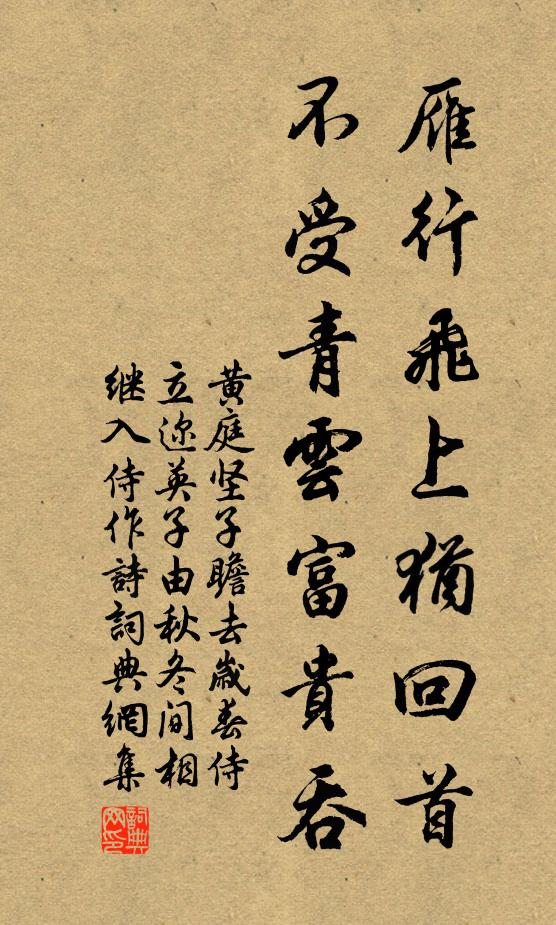 雁行飛上猶回首
不受青雲富貴吞
黄庭坚子瞻去歲春侍
立迩英子由秋冬间相
继入侍作詩詞典網集
詞典
网印